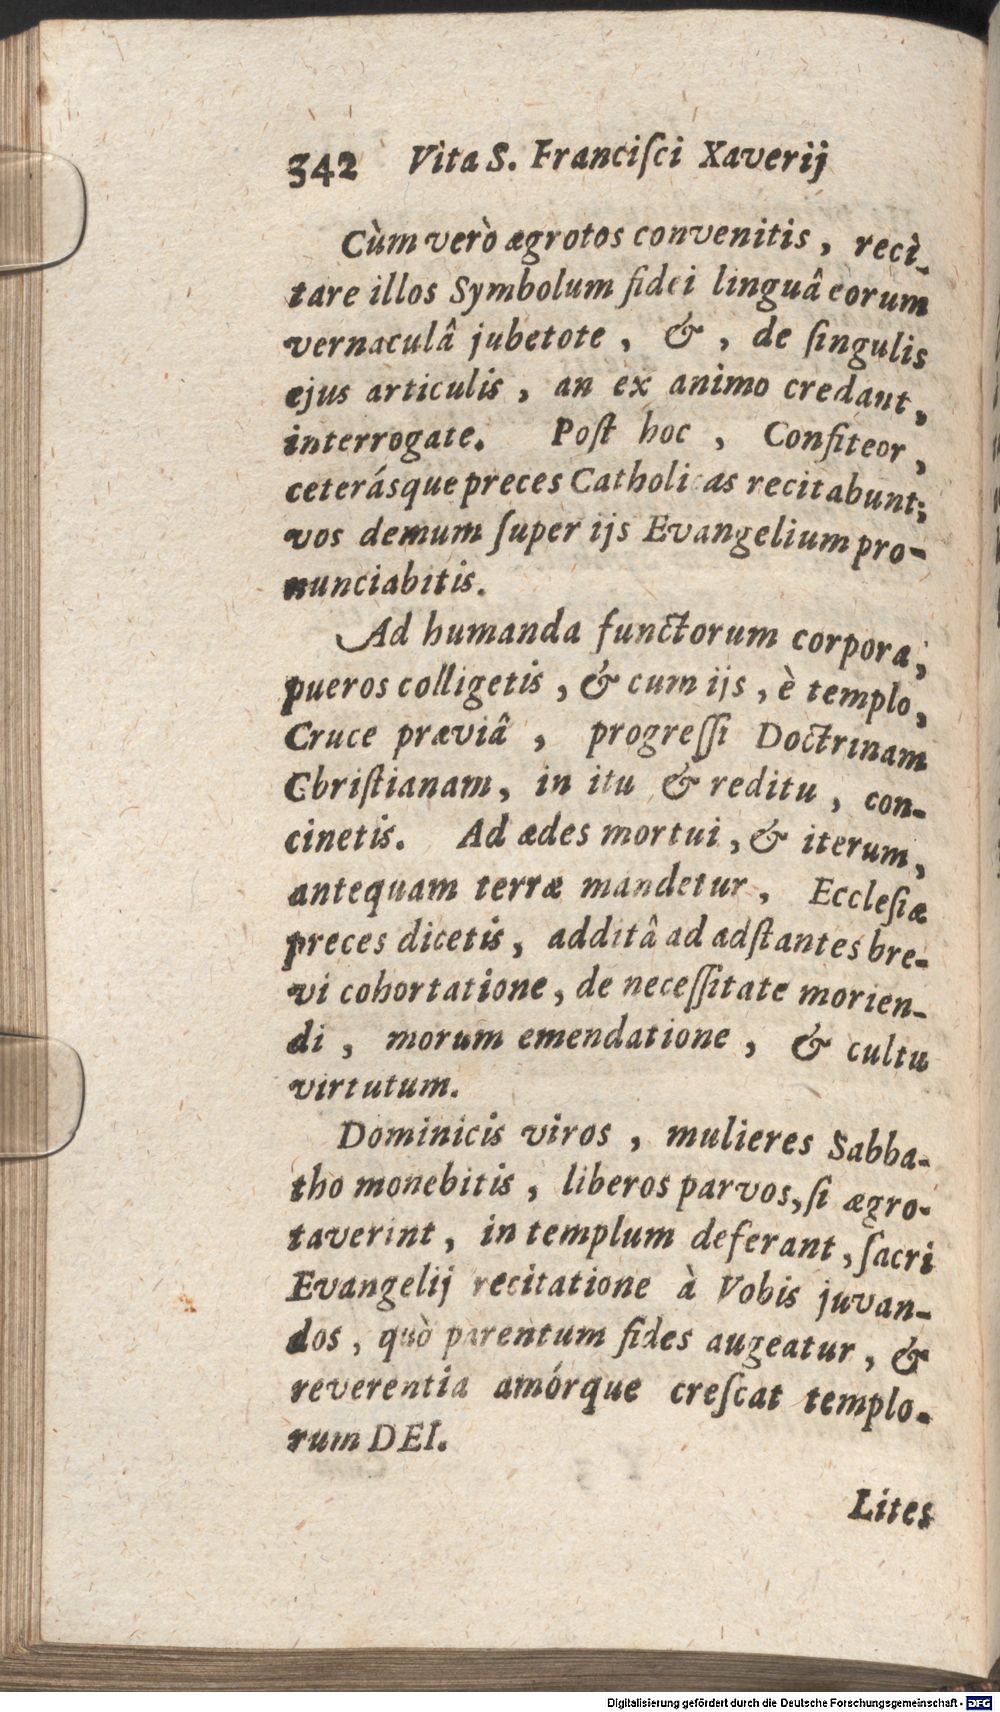 342 Vita S. Franciſci Xaverij
Cùm verò ægrotos convenitis, reci-
tare illos Symbolum fidei linguâ eorum
vernaculâ jubetote, &, de ſingulis
ejus articulis, an ex animo credant,
interrogate. Poſt hoc, Confiteor,
ceterásque preces Catholicas recitabunt;
vos demum ſuper ijs Evangelium pro-
nunciabitis.
Ad humanda functorum corpora,
pueros colligetis, & cum ijs, è templo,
Cruce præviâ, progreſſi Doctrinam
Chriſtianam, in itu & reditu, con-
cinetis. Ad ædes mortui, & iterum,
antequam terræ mandetur, Eccleſiæ
preces dicetis, additâ ad adſtantes bre-
vi cohortatione, de neceſſitate morien-
di, morum emendatione, & cultu
virtutum.
Dominicis viros, mulieres Sabba-
tho monebitis, liberos parvos, ſi ægro-
taverint, in templum deferant, ſacri
Evangelij recitatione à Vobis juvan-
dos, quò parentum fides augeatur, &
reverentia amórque creſcat templo-
rum DEI.
Lites
Digitalisierung gefördert durch die Deutsche Forschungsgemeinschaft - DFG